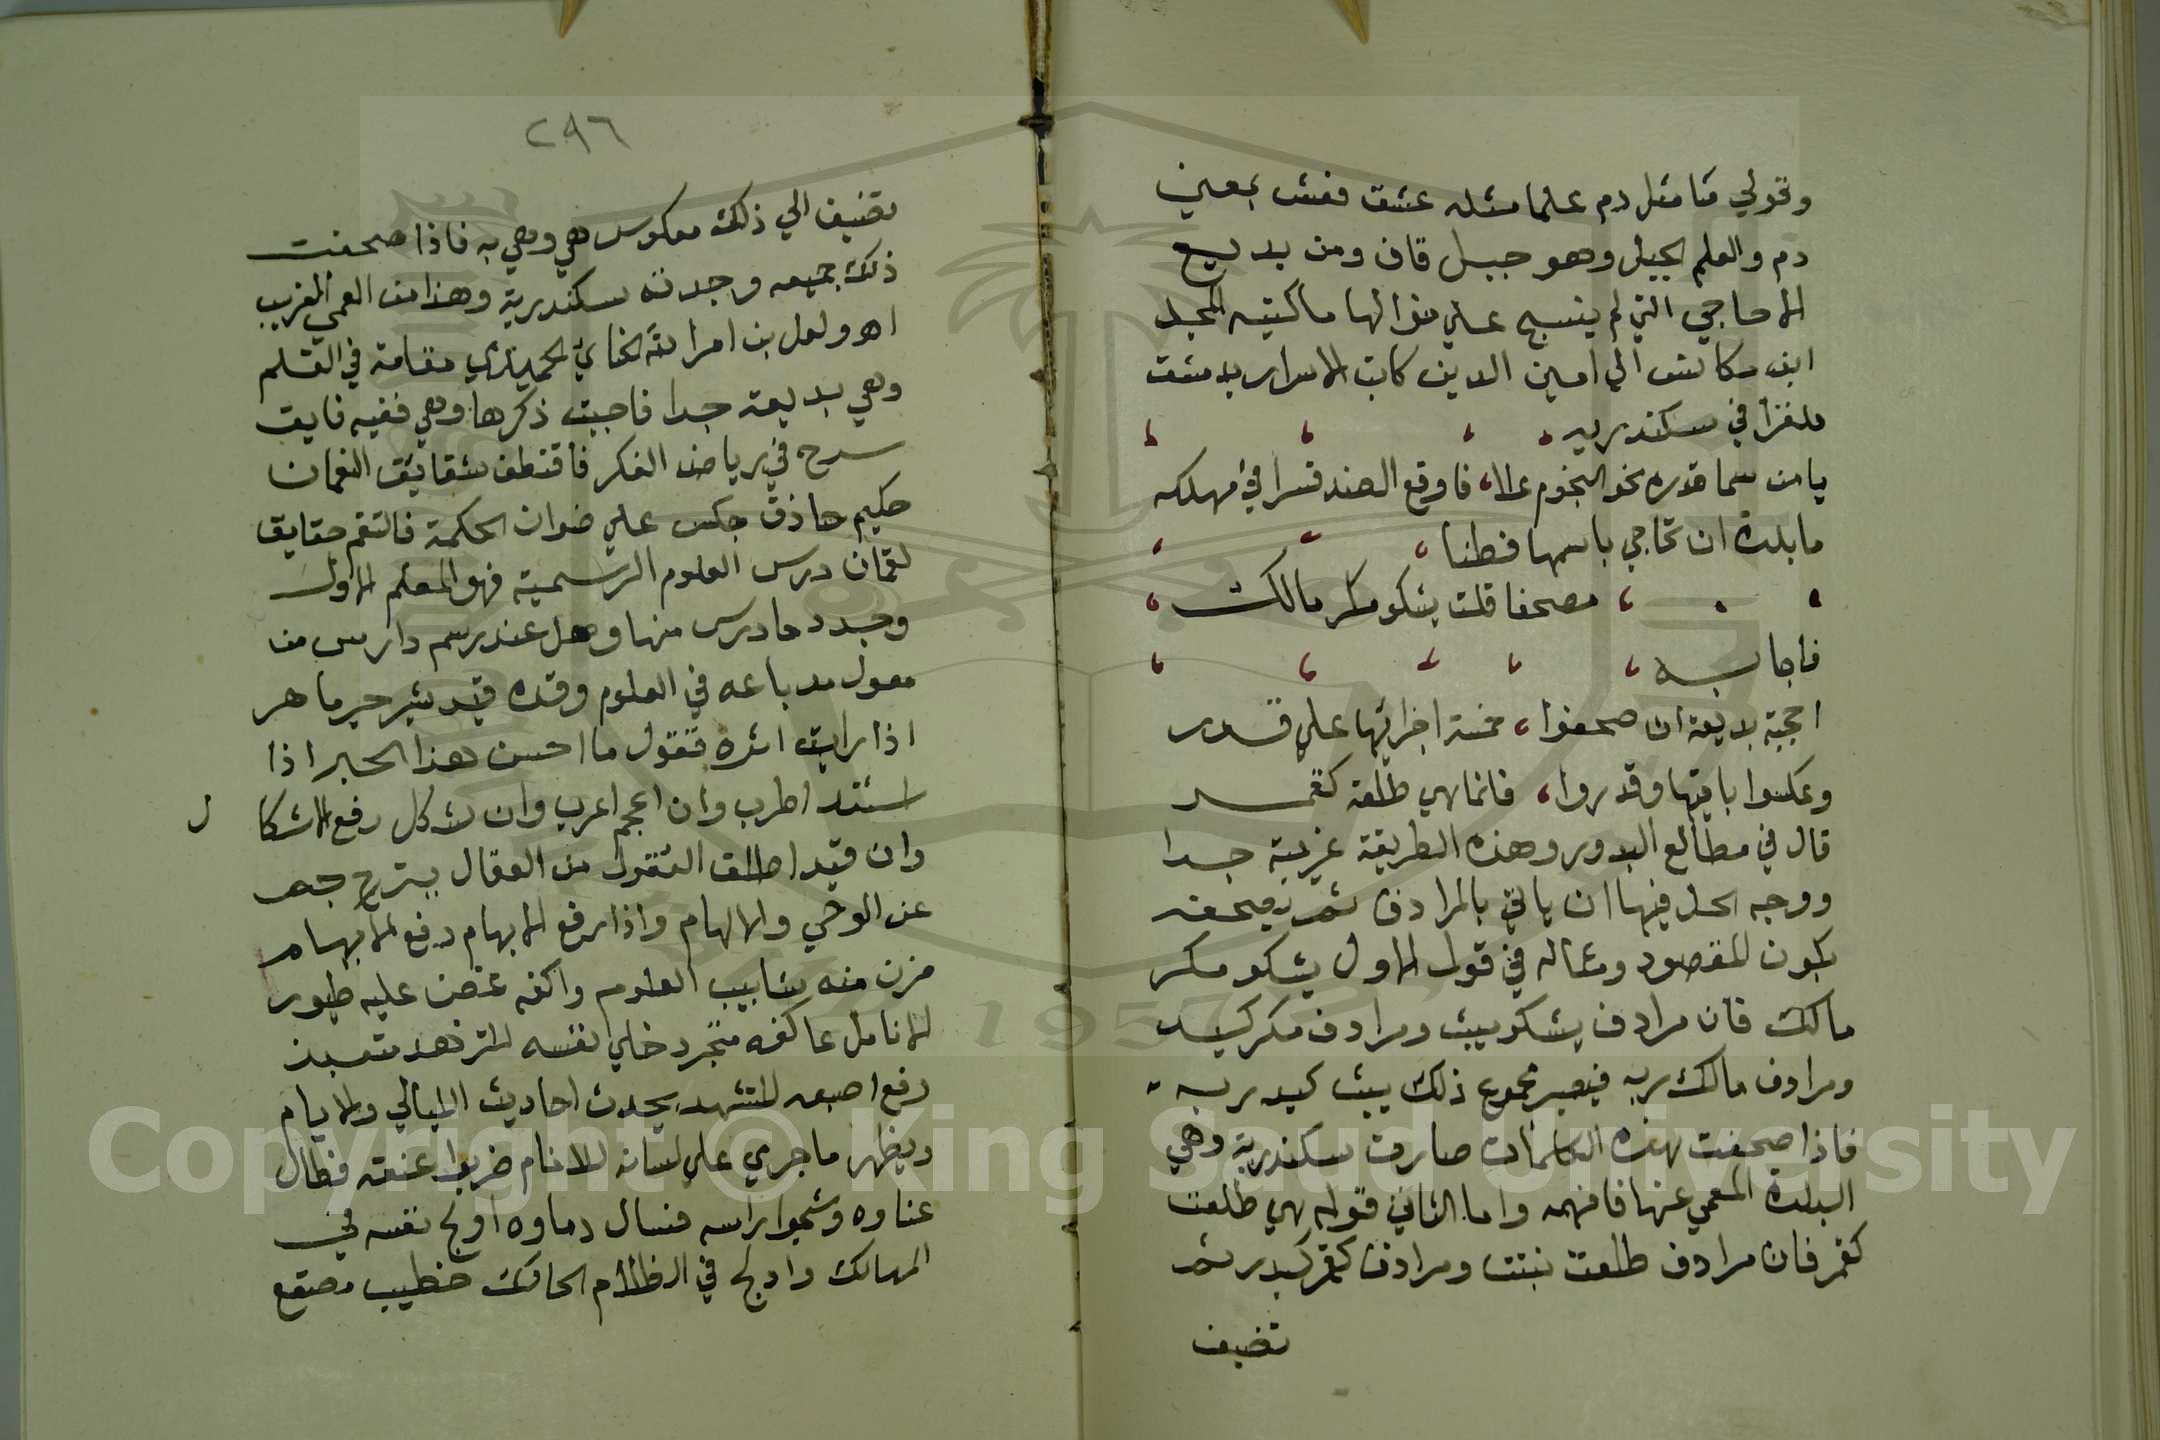 وقولي ما مثل دم علما مثله عشق فعش بمعني
دم والعلم الجبل وهو جبل قاف ومن بديع
الاحاجي التي لم ينسج علي منوالها ما كتبه المجد
ابن مكانس الي امين الدين كاتب الاسرار بدمشق
ملغزا في سكندريه
يا من سما قدره نحو النجوم علا فاوقع الضد قسرا في مهلكه
ما بلدة ان تحاجي باسمها فطنا
مصحفا قلت يشكو مكر مالك
فاجابه
احجية بديعة ان صحفوا خمسة اجزائها علي قدر
وعكسوا باقيها وقدروا فانما هي طلعة كقمر
قال في مطالع البدور وهذه الطريقة غريبة جدا
ووجه الحل فيها ان ياتي بالمرادف ثم تصحفه
يكون المقصود ومثاله في قول الاول يشكو مكر
مالك فان مرادف يشكو يبث ومرادف مكر كيد
ومرادف مالك ربه فيصير مجموع ذلك يبث كيد ربه
فاذا صحفت هذه الكلمات صارت سكندرية وهي
البلدة المعمي عنها فافهمه واما الثاني قوله هي طلعت
كقمر فان مرادف طلعت نبتت ومرادف كقمر كبدر ثم
تضيف
٢٩٦
تضيف الي ذلك معكوس هي وهي يه فاذا صحفت
ذلك جميعه وجدته سكندرية وهذا من العمي الغريب
اه ولعل بن امرالله الحنائي الحميدي مقامة في القلم
وهي بديعة جدا فاحببت ذكرها وهي فقيه فايق
سرح في رياض الفكر فاقتطف شقايق النعمان
حكيم حاذق جلس علي خوان الحكمة فالتقم حقايق
لقمان درس العلوم الرسمية فهو المعلم الاول
وجدد ما درس منها وهل عند رسم دارس من
معول مد باعه في العلوم وقده قيد شبر حبر ماهر
اذا رايت اثره فتقول ما احسن هذا الحبر اذا
انشد اطرب وان اعجم اعرب وان شكل رفع الاشكا
ل
وان قيد اطلق العقول من العقال يترجم
عن الوحي والالهام واذا رفع الابهام دفع الابهام
مزن منه شابيب العلوم واكفه غصن عليه طيور
الانامل عاكفه متجرد خلي نفسه للتزهد متعبد
رفع اصبعه للتشهد يحدث احاديث الليالي والايام
ويظهر ما جري علي لسانه للانام ضربوا عنقه فطال
عناوه وشجوا راسه فسال دماوه اولج نفسه في
المهالك وادلج في الظلام الحالك خطيب مصقع
Copyright © King Saud University
1957